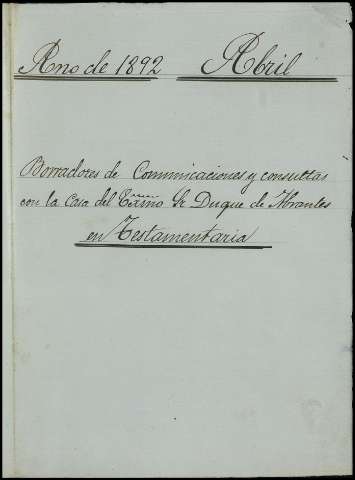 Año de 1892 Abril
Borradores de Comunicaciones y consultas
con la Casa del Exmo Sr Duque de Abrantes
en Testamentaria